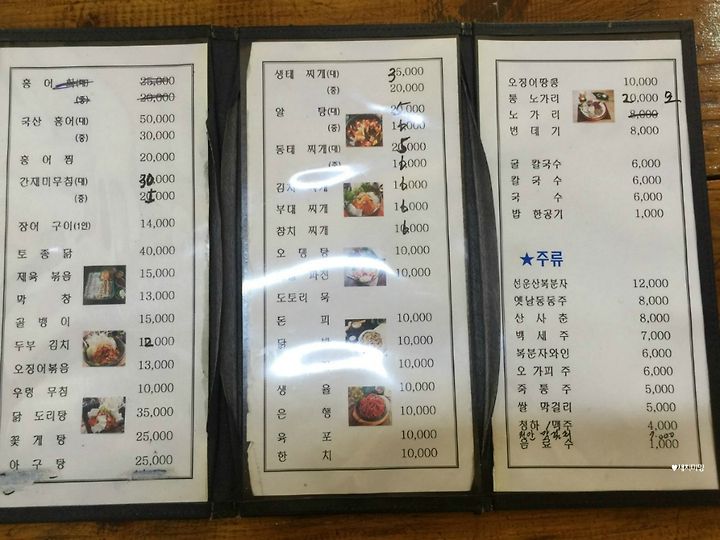 홍 어 회(대) 25,000
(중) 20,000
국산 홍어(대) 50,000
(중) 30,000
홍 어 찜 20,000
간재미무침(대) 30,000
(중) 25,000
장어 구이(1인) 14,000
토 종 닭 40,000
제육 볶음 15,000
막 창 13,000
골 뱅 이 15,000
두부 김치 12,000
오징어볶음 13,000
우렁 무침 10,000
닭 도리탕 35,000
꽃 게 탕 25,000
아 구 탕 25,000
생태 찌개(대) 35,000
(중) 20,000
알 탕(대)
(중)
동태 찌개(대)
(중)
김치 찌개
부대 찌개
참치 찌개
오 뎅 탕 10,000
파전 10,000
도토리 묵
돈 피 10,000
닭 10,000
10,000
생 율 10,000
은 행 10,000
육 포 10,000
한 치 10,000
오징어땅콩 10,000
통 노가리 20,000
노 가 리 8,000
번 데 기 8,000
굴 칼국수 6,000
칼 국 수 6,000
국 수 6,000
밥 한공기 1,000
★주류
선운산복분자 12,000
옛날동동주 8,000
산 사 춘 8,000
백 세 주 7,000
복분자와인 6,000
오 가 피 주 6,000
죽 통 주 5,000
쌀 막걸리 5,000
청하 / 맥주 4,000
7,000
음 료 수 1,000